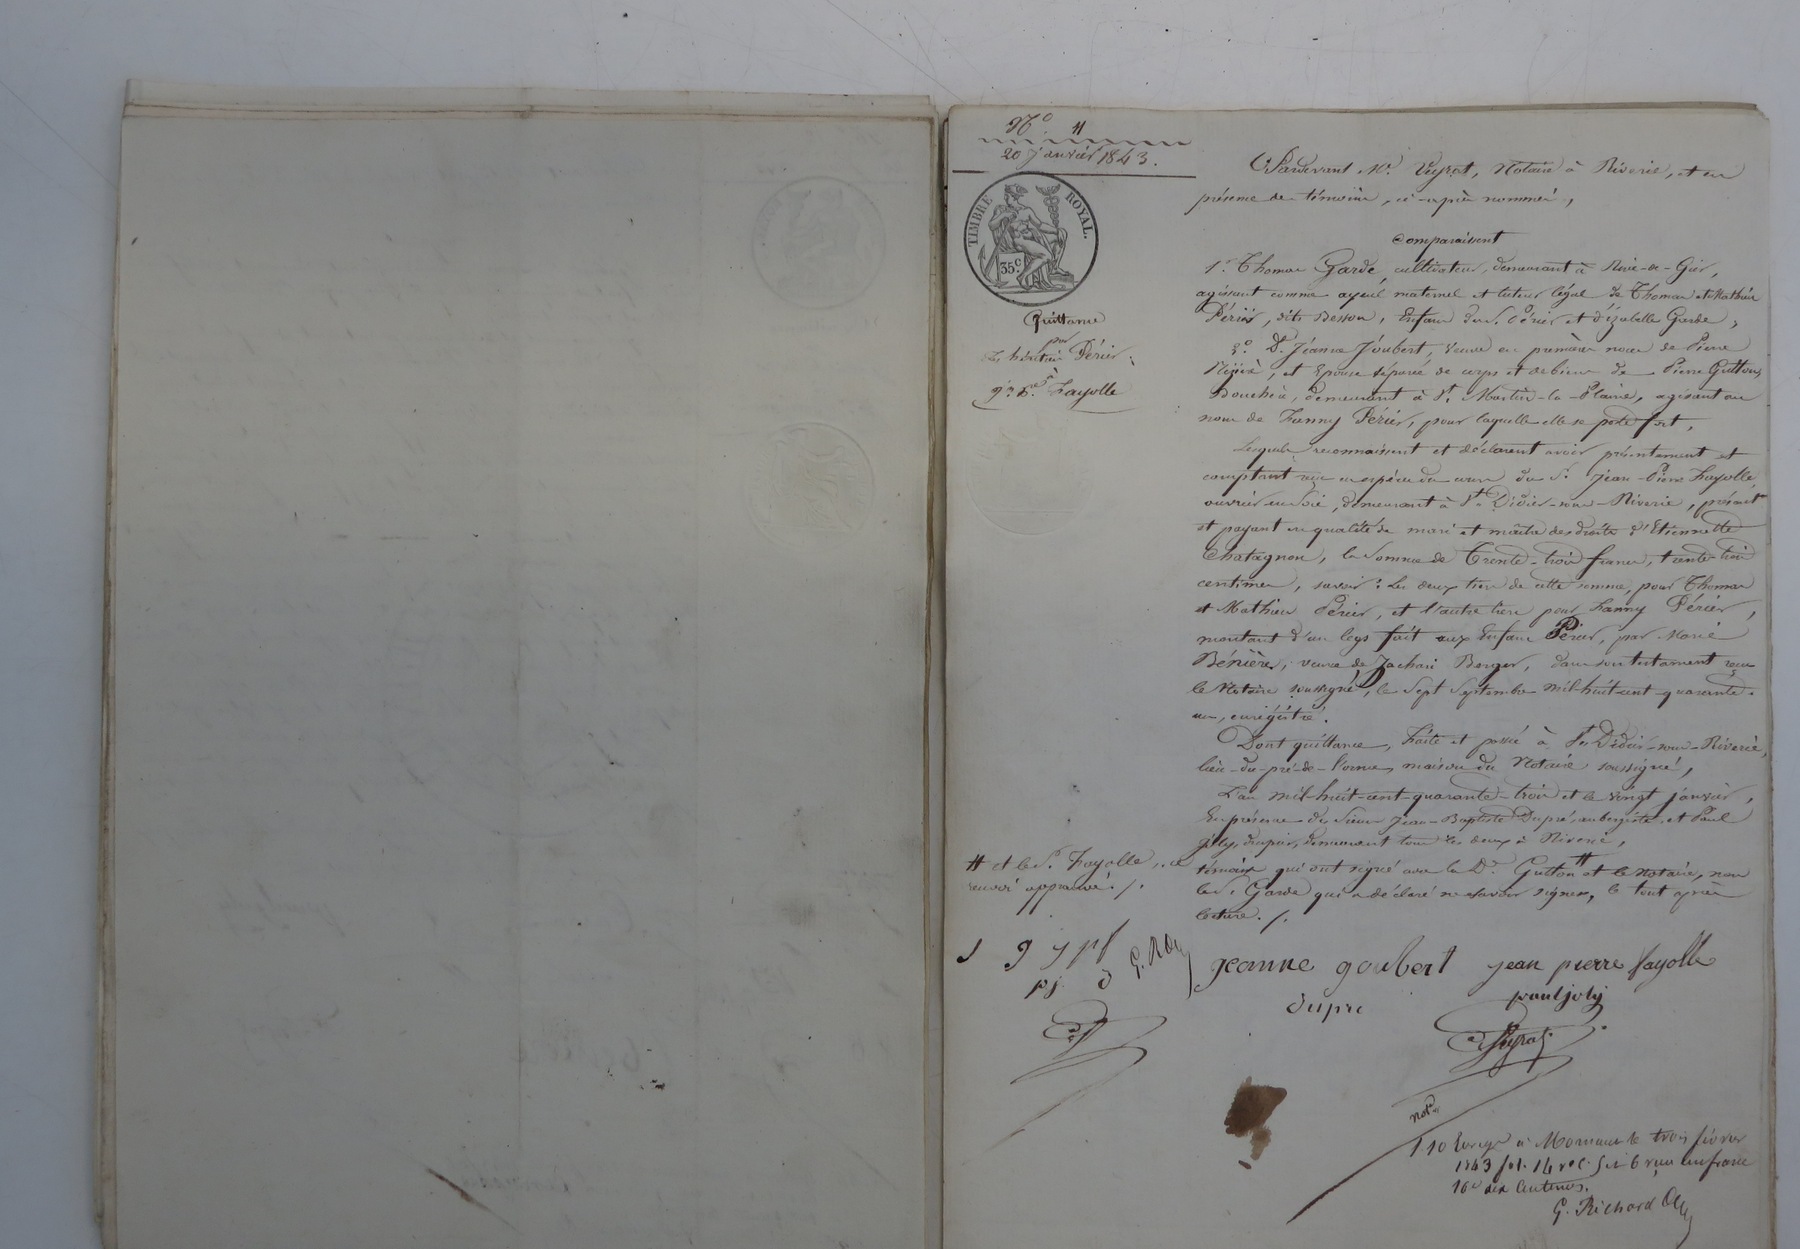 N° 11
20 janvier 1843.
TIMBRE ROYAL.
35 c.
Quittance
par
Les héritiers Périer
à
Fayolle
Pardevant Me. Veyrat, Notaire à Riverie, et en
présence des témoins, ci-après nommés,
Comparaissent
1° Thomas Garde, cultivateur, demeurant à Rive-de-Gier,
agissant comme ayeul maternel et tuteur légal de Thomas et Mathieu
Périer, dits Besson, Enfans du Sr. Périer et d'Izabelle Garde,
2° De. Jeanne Joubert, veuve en premières noces de Pierre
et Epouse séparée de corps et de biens de Pierre Gutton,
demeurant à St. Martin-la-Plaine, agissant au
nom de Fanny Périer, pour laquelle elle se porte fort,
Lesquels reconnaissent et déclarent avoir présentement et
comptant reçu en espèces de cours du Sr. Jean-Pierre Fayolle,
ouvrier en soie, demeurant à St. Didier-sous-Riverie, présent
et payant en qualité de mari et maître des droits d'Etiennette
Chatagnon, la Somme de Trente-trois francs, trente-trois
centimes, savoir: Les deux tiers de cette somme, pour Thomas
et Mathieu Périer, et l'autre tiers pour Fanny Périer,
montant d'un legs fait aux Enfans Périer, par Marie
Bénière, veuve de Zacharie Berger, dans son testament reçu
le Notaire soussigné, le Sept Septembre mil-huit-cent-quarante-
un, enrégistré.
Dont quittance, Faite et passée à St. Didier-sous-Riverie,
lieu-du-pré-de-l'orme, maison du Notaire soussigné,
L'an mil-huit-cent-quarante-trois et le vingt janvier,
En présence des Sieurs Jean-Baptiste Dupré, aubergiste, et Paul
Joly, demeurant tous les deux à Riverie,
témoins qui ont signé avec la De. Gutton # et le notaire, non
le Sr. Garde qui a déclaré ne savoir signer, le tout après
lecture. /.
# et le Sr. Fayolle, ce
renvoi approuvé. /.
J g j p f
p j d G. R
jeanne goubert jean pierre fayolle
dupre paul joly
Veyrat
not.
1 10 Enregé à Mornant le trois février
1843 fol. 14 ro c. 5 et 6 reçu un franc
10e dix centimes.
G. Richard